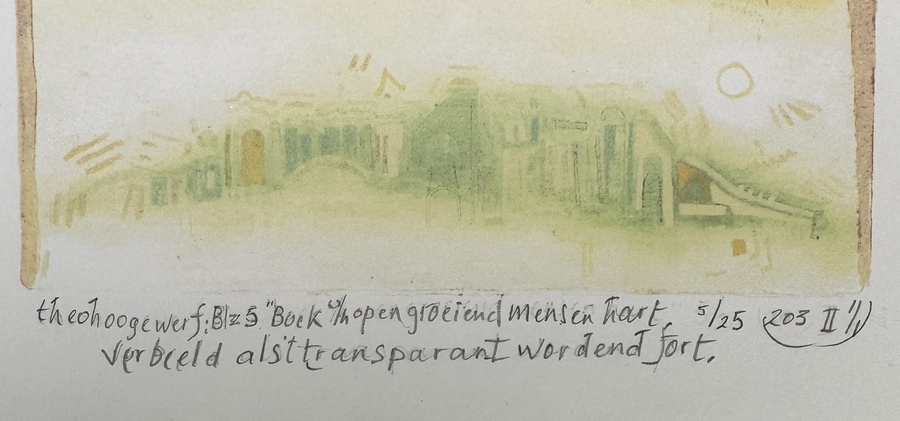 theohoogewerf: Blz 5 "Boek v/h open groeiend mensen hart, 5/25 (203 II")
Verbeeld als 't transparant wordend fort.